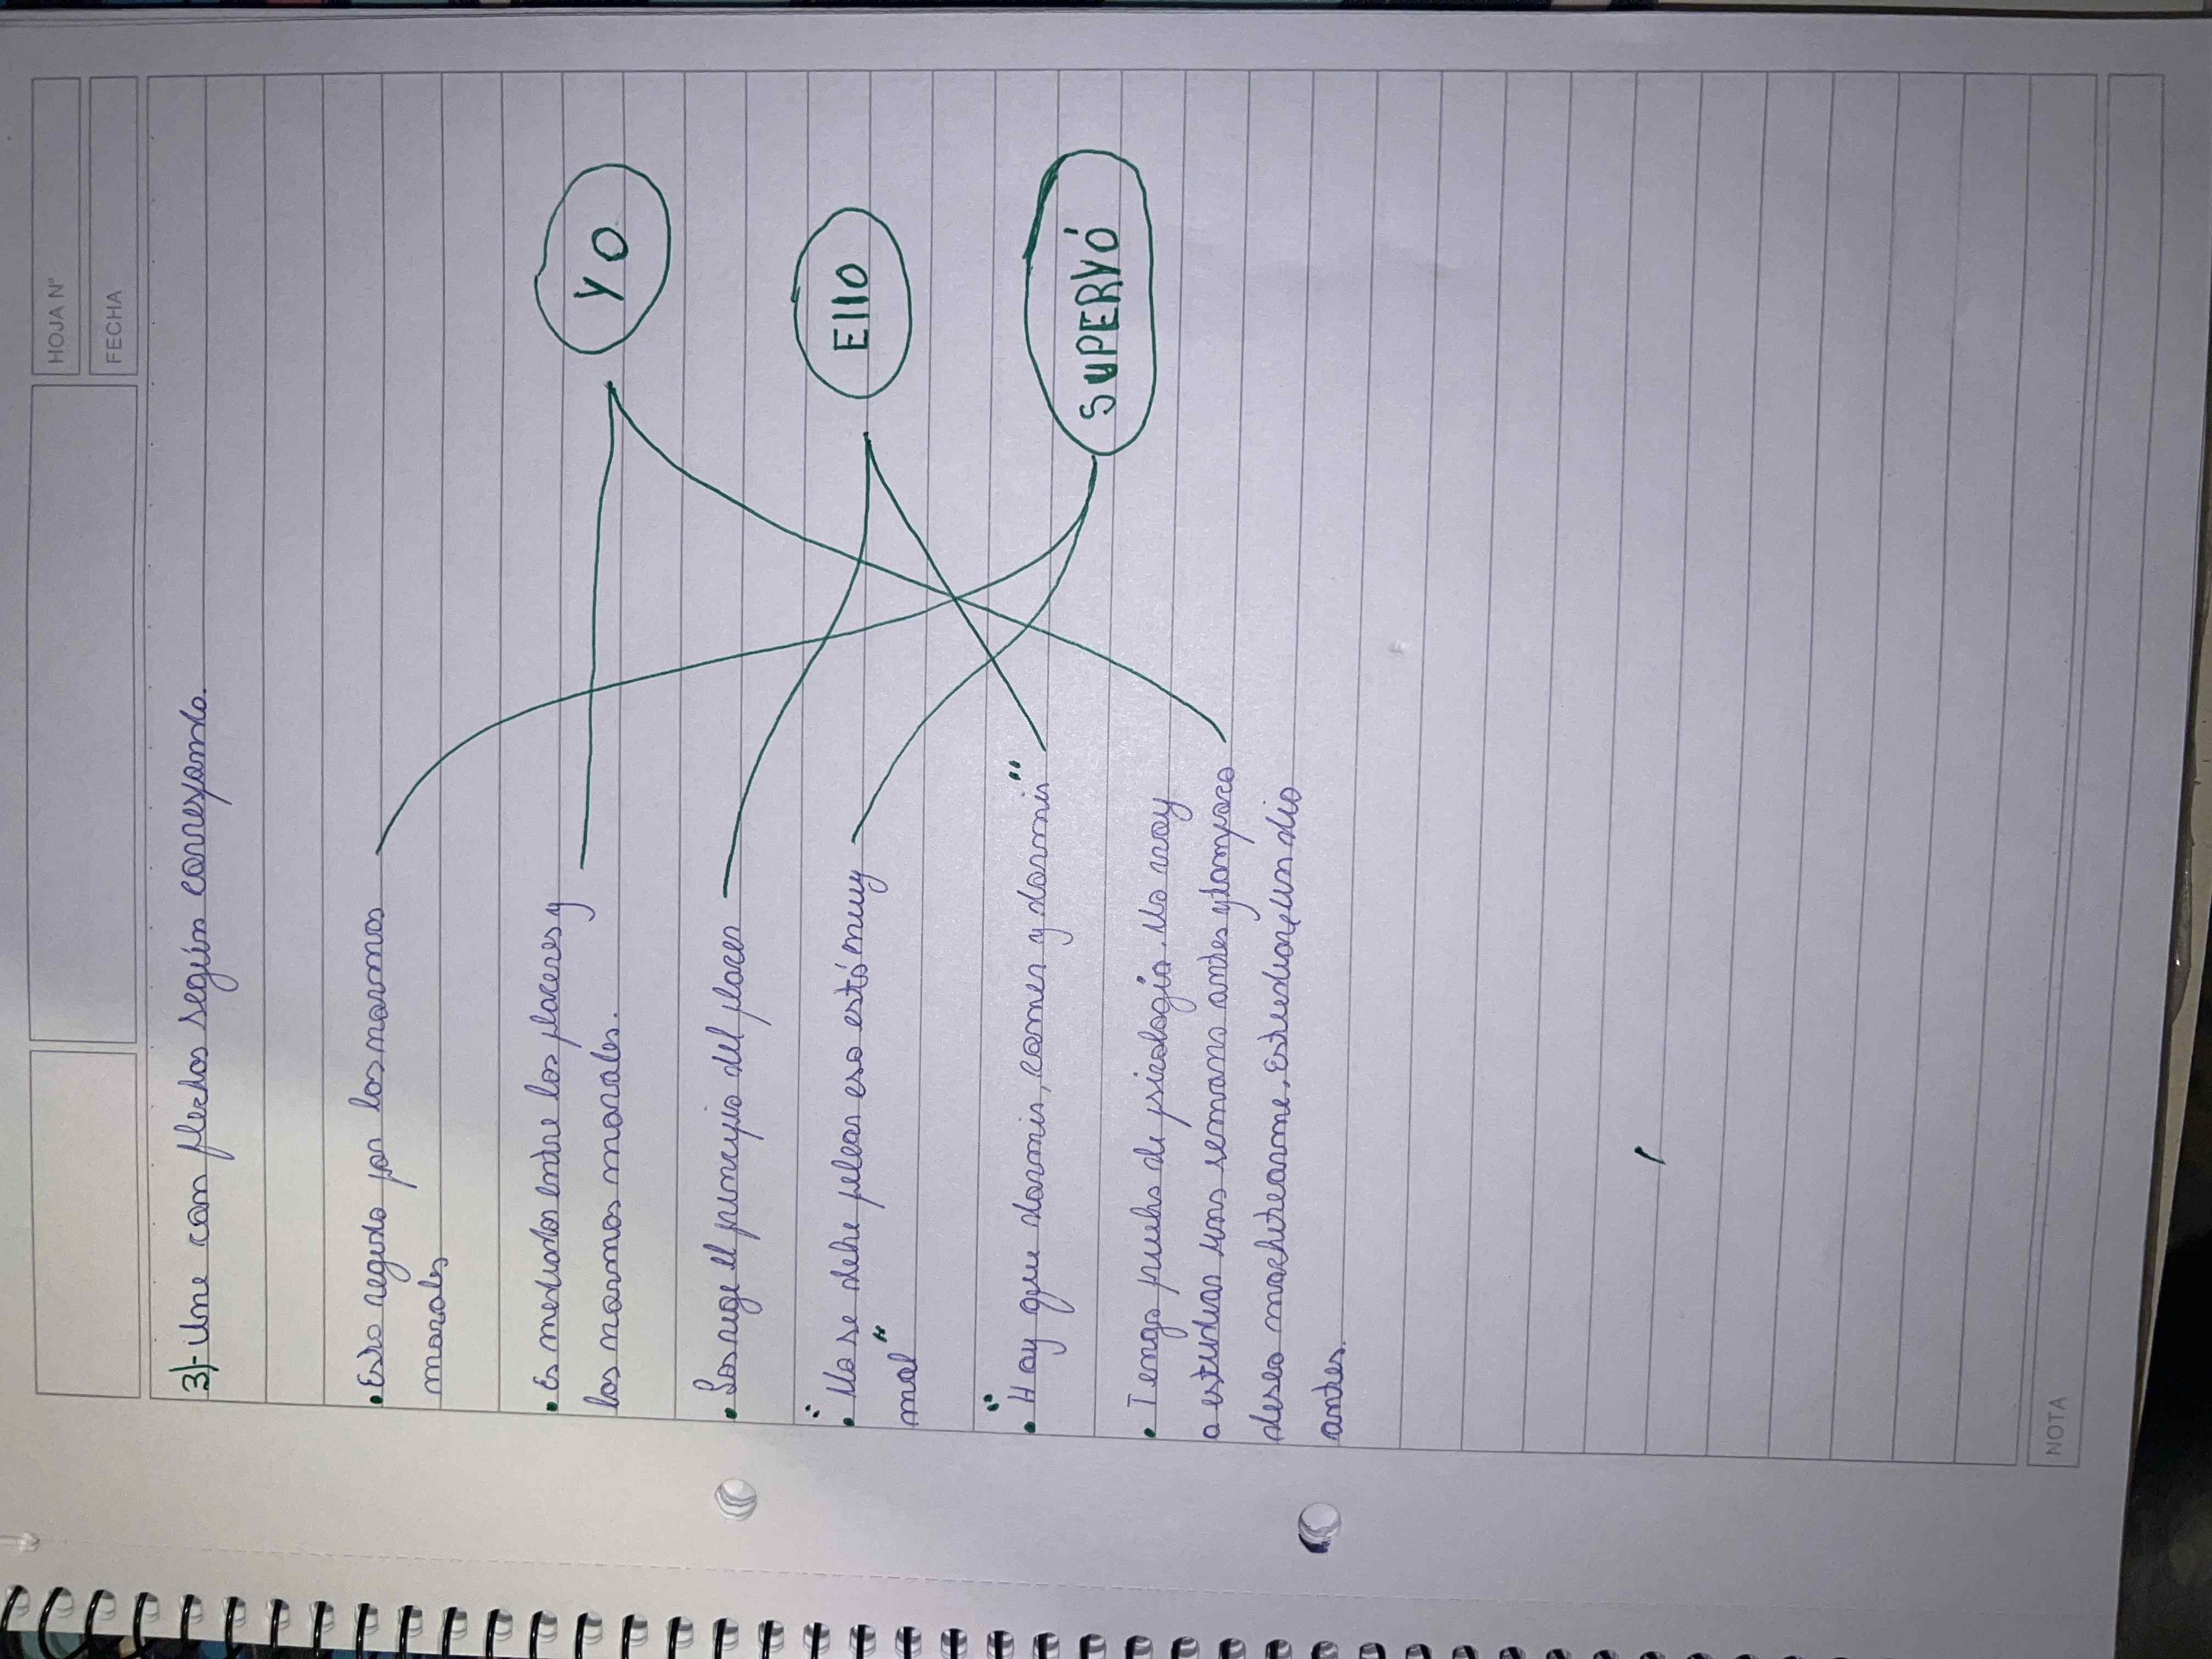 HOJA N°
FECHA
3)- Une con flechas según corresponda.
• Esta regido por las normas
morales
• Es mediador entre los placeres y
las normas morales.
• Los rige el principio del placer
• "No se debe pelear eso está muy
mal"
• "Hay que dormir, comer y dormir"
• Tengo prueba de psicología. No voy
a estudiar una semana antes y tampoco
deseo machetearme, estudiaré un dia
antes.
YO
Ello
SUPERYÓ
NOTA